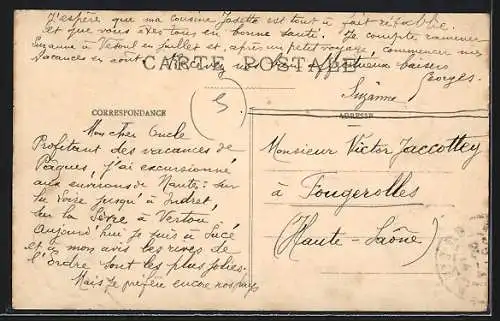 J'espère que ma cousine Josette est tout à fait rétablie
et que vous êtes tous en bonne santé. Je compte ramener
Suzanne à Vesoul en juillet et, après un petit voyage, commencer mes
vacances en août. Recevez nos plus affectueux baisers
Georges.
Suzanne
CARTE POSTALE
5
CORRESPONDANCE
ADRESSE
Mon cher Oncle
Profitant des vacances de
Pâques, j'ai excursionné
aux environs de Nantes : sur
la Loire jusqu'à Indret,
sur la Sèvre à Vertou
Aujourd'hui je suis à Sucé
et à mon avis les rives de
l'Erdre sont les plus jolies.
Mais je préfère encore nos
Monsieur Victor Jaccottey
à Fougerolles
(Haute-Saône)